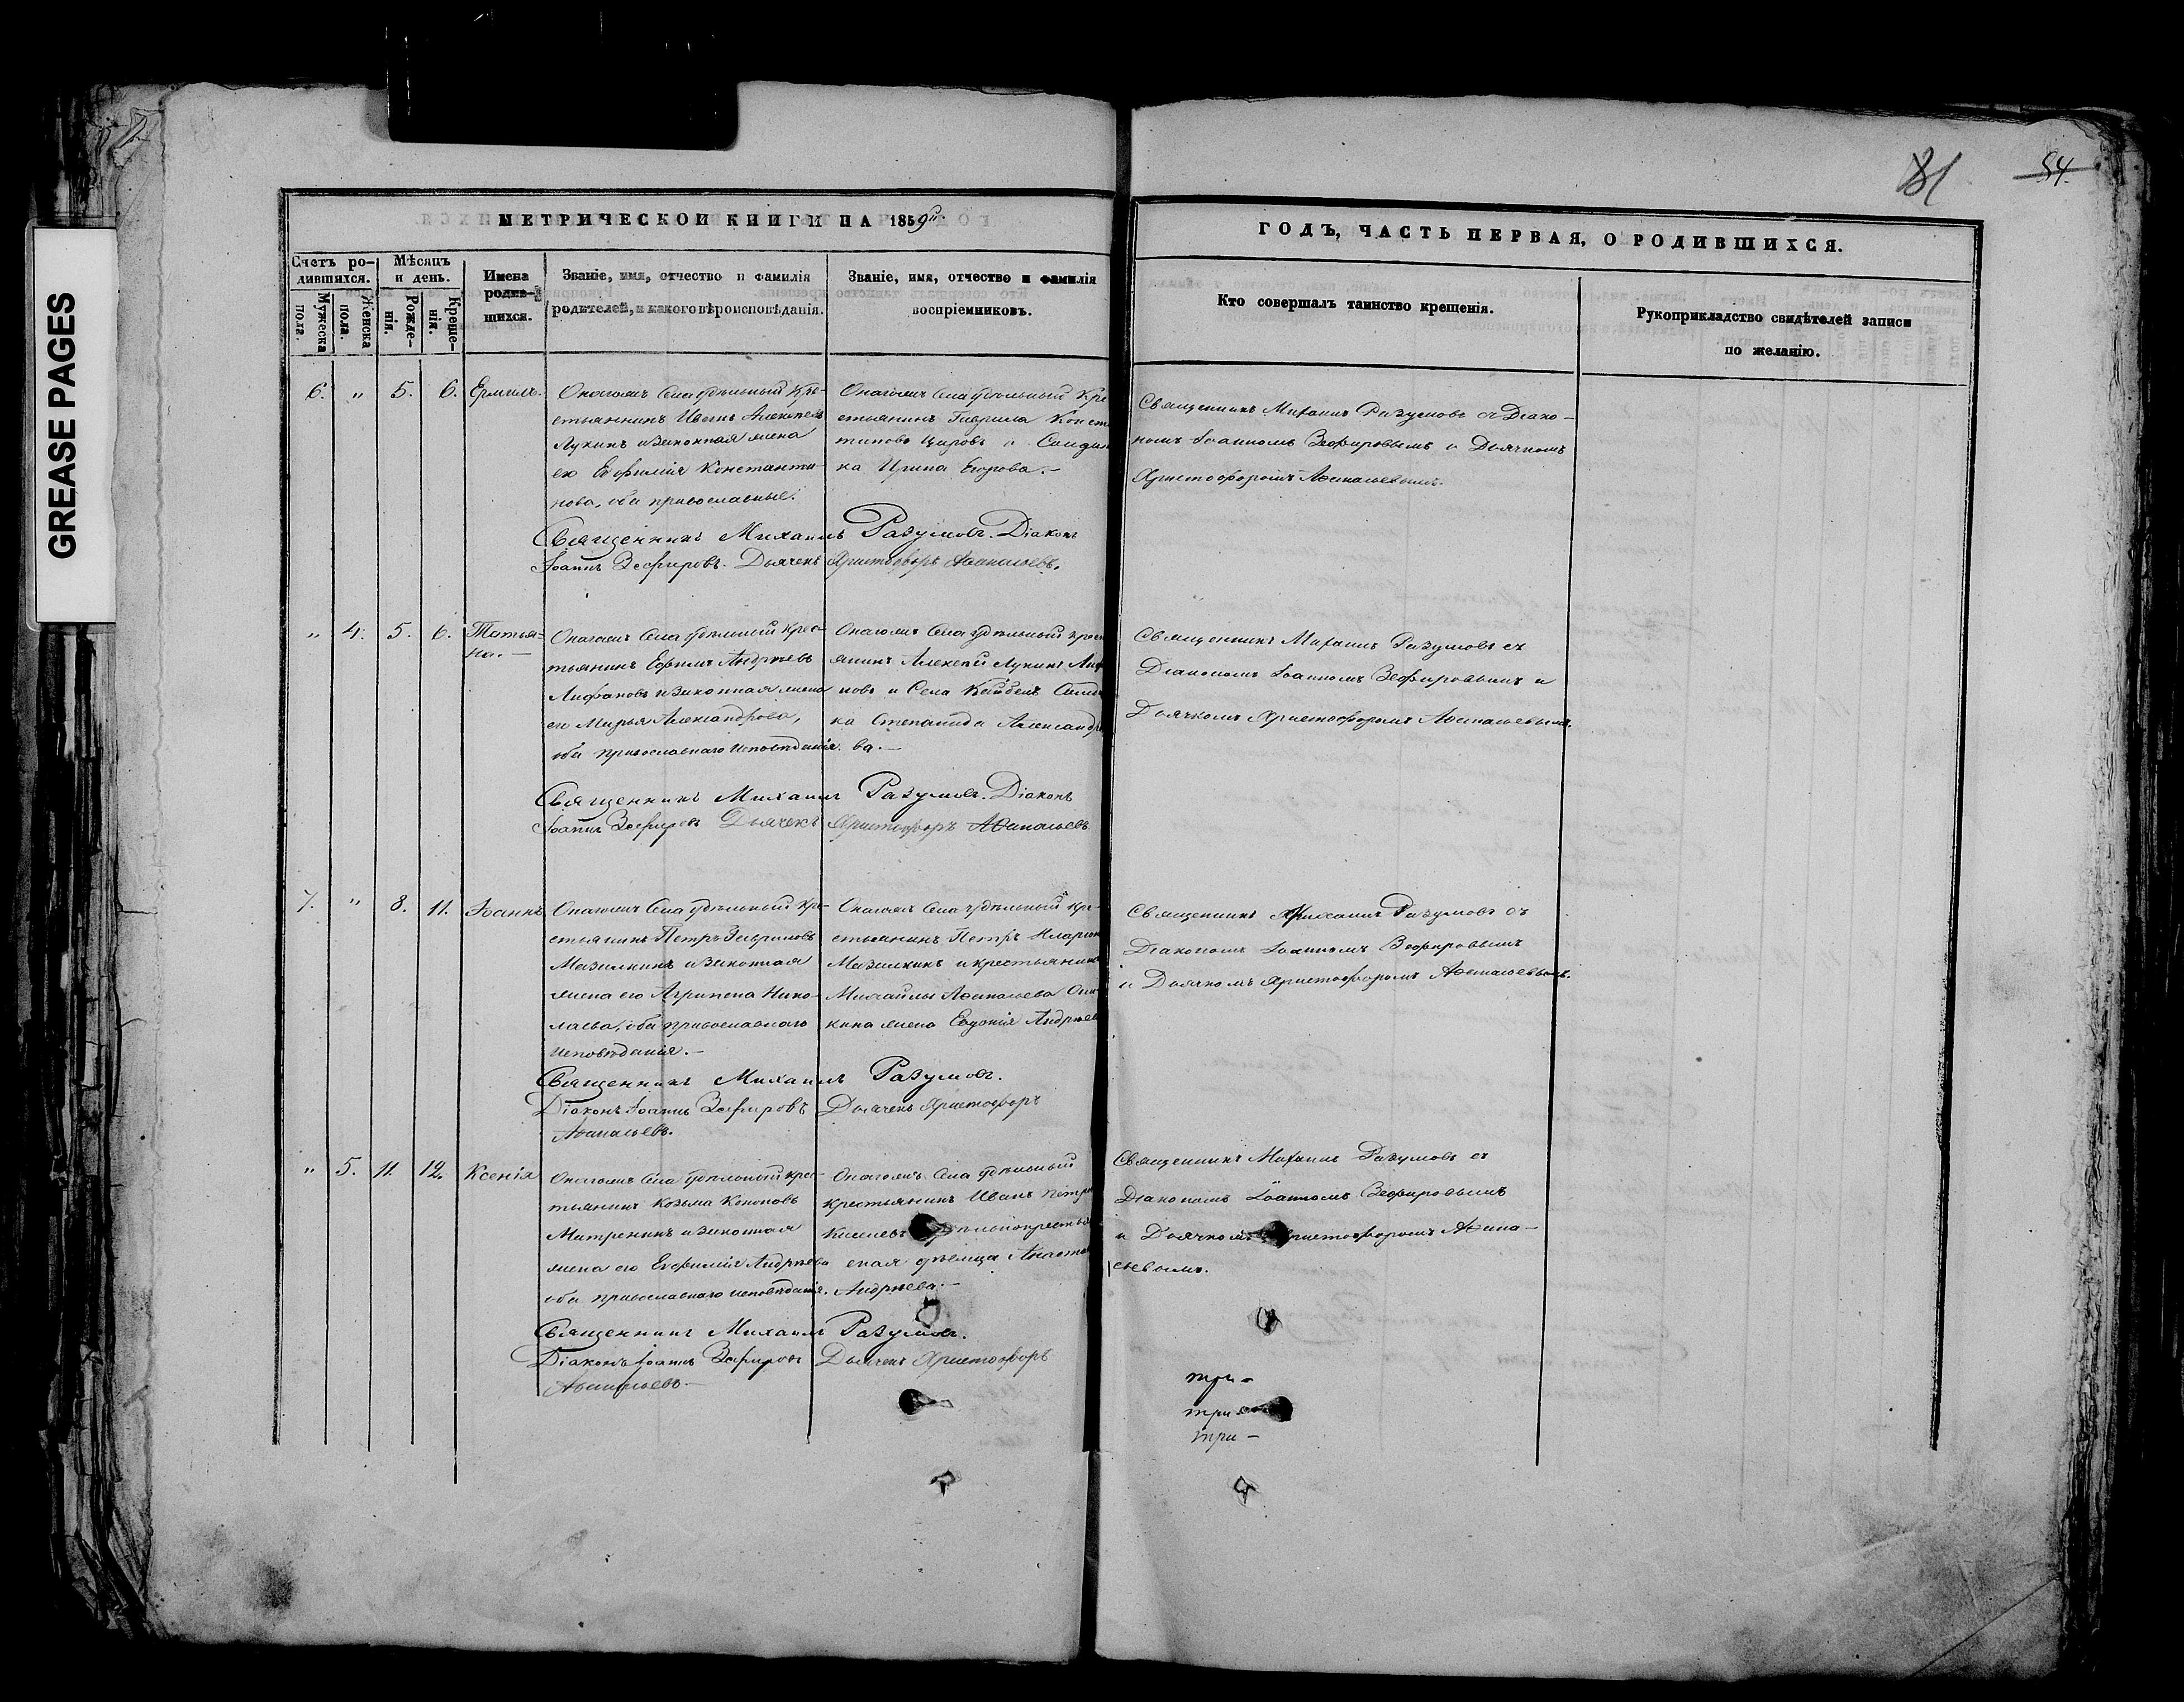 GREASE PAGES
81
54.
МЕТРИЧЕСКОЙ КНИГИ НА 1859й
ГОДЪ, ЧАСТЬ ПЕРВАЯ, О РОДИВШИХСЯ.
Счетъ ро-
дившихся.
Мужеска
пола.
Женска
пола.
Мѣсяцъ
и день.
Рожде-
нія.
Креще-
нія.
Имена
родив-
шихся.
Званіе, имя, отчество и фамилія
родителей, и какого вѣроисповѣданія.
Званіе, имя, отчество и фамилія
воспріемниковъ.
Кто совершалъ таинство крещенія.
Рукоприкладство свидѣтелей записи
по желанію.
6. „ 5. 6. Ермилъ.
Онагожъ Села удѣльный кре-
стьянинъ Иванъ Алексѣевъ
Лукинъ и законная жена
его Евфимія Константи-
нова, оба православные.
Онагожъ Села удѣльный кре
стьянинъ Гаврила Конст
тиновъ и
ка Ирина Егорова.-
Священникъ Михаилъ Разумовъ съ Діако-
номъ Іоанномъ Зефировымъ и Дьячкомъ
Христофоромъ Аѳанасьевымъ.
Священникъ Михаилъ Разумовъ. Діаконъ
Іоаннъ Зефировъ. Дьячекъ Христофоръ Аѳанасьевъ.
„ 4. 5. 6. Татья-
на.-
Онагожъ Села удѣльный крес-
тьянинъ Ефимъ Андреевъ
Лифановъ и законная жена
его Марья Александрова,
оба православнаго исповѣданія.
Онагожъ Села удѣльный крест
янинъ Алексѣй Лукинъ Лиф
новъ и Села
ка Степанида Александр
ва.-
Священникъ Михаилъ Разумовъ съ
Діакономъ Іоанномъ Зефировымъ и
Дьячкомъ Христофоромъ Аѳанасьевымъ.
Священникъ Михаилъ Разумовъ. Діаконъ
Іоаннъ Зефировъ Дьячекъ Христофоръ Аѳанасьевъ
7. „ 8. 11. Іоаннъ
Онагожъ Села удѣльный кре-
стьянинъ Петръ Гавриловъ
Мазилкинъ и законная
жена его Агрипена Нико-
лаева, оба православнаго
исповѣданія.-
Онагожъ Села удѣльный кре-
стьянинъ Петръ Иларион
Мазилкинъ и крестьянина
Михайлы Аѳанасьева
кина жена Евдокія Андреев
Священникъ Михаилъ Разумовъ съ
Діакономъ Іоанномъ Зефировымъ
и Дьячкомъ Христофоромъ Аѳанасьевымъ.
Священникъ Михаилъ Разумовъ.
Діаконъ Іоаннъ Зефировъ Дьячекъ Христофоръ
Аѳанасьевъ.
„ 5. 11. 12. Ксенія
Онагожъ Села удѣльный крес-
тьянинъ Козьма Кононовъ
Митренинъ и законная
жена его Евфимія Андреева
оба православнаго исповѣданія.
Онагожъ Села удѣльный
крестьянинъ Иванъ Петров
Андреева.-
Священникъ Михаилъ Разумовъ съ
Діакономъ Іоанномъ Зефировымъ
и Дьячкомъ Христофоромъ Аѳана-
сьевымъ.
Священникъ Михаилъ Разумовъ.
Діаконъ Іоаннъ Зефировъ Дьячекъ Христофоръ
Аѳанасьевъ.-
три-
три-
три-